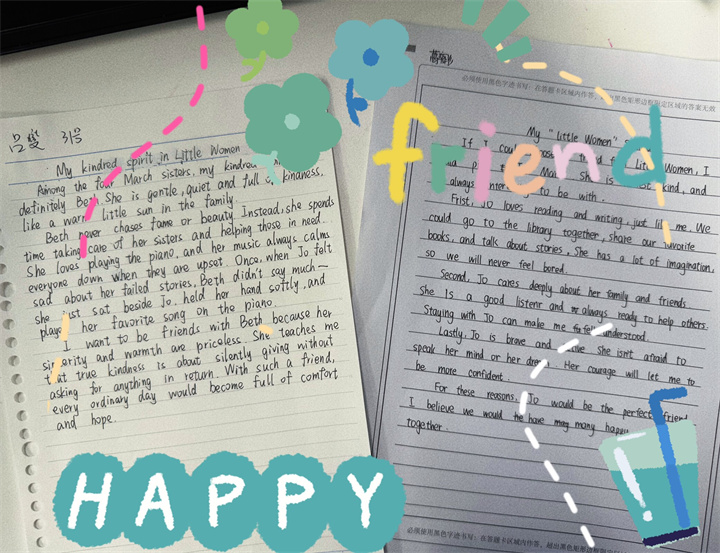 吕莹 3号
My kindred spirit in Little Women
Among the four March sisters, my kindred
definitely Beth. She is gentle, quiet and full of kindness,
like a warm little sun in the family.
Beth never chases fame or beauty. Instead, she spends
time taking care of her sisters and helping those in need.
She loves playing the piano, and her music always calms
everyone down when they are upset. Once, when Jo felt
sad about her failed stories, Beth didn't say much—
she just sat beside Jo, held her hand softly, and
played her favorite song on the piano.
I want to be friends with Beth because her
sincerity and warmth are priceless. She teaches me
that true kindness is about silently giving without
asking for anything in return. With such a friend,
every ordinary day would become full of comfort
and hope.
必须使用黑色字迹书写；在答题卡区域内作答，超出黑色矩形边框限定区域的答案无效
My "Little Women"
If I could Women, I
Mar kind, and
always inter to be with.
Frist, Jo loves reading and writing, just like me. We
could go to the library together, share our favorite
books, and talk about stories. She has a lot of imagination,
so we will never feel bored.
Second, Jo cares deeply about her family and friends
She Is a good listenr and always ready to help others.
Staying with Jo can make me feel understood.
Lastly, Jo is brave and She isn't afraid to
speak her mind or her Her courage will let me to
be more confident.
For these reasons, Jo would be the perfect friend
I believe we would have many happy
together.
必须使用黑色字迹书写；在答题卡区域内作答，超出黑色矩形边框限定
friend
HAPPY